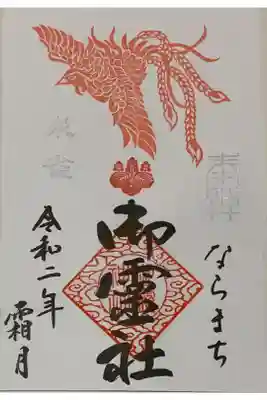 ならまち
御霊社
令和二年
霜月